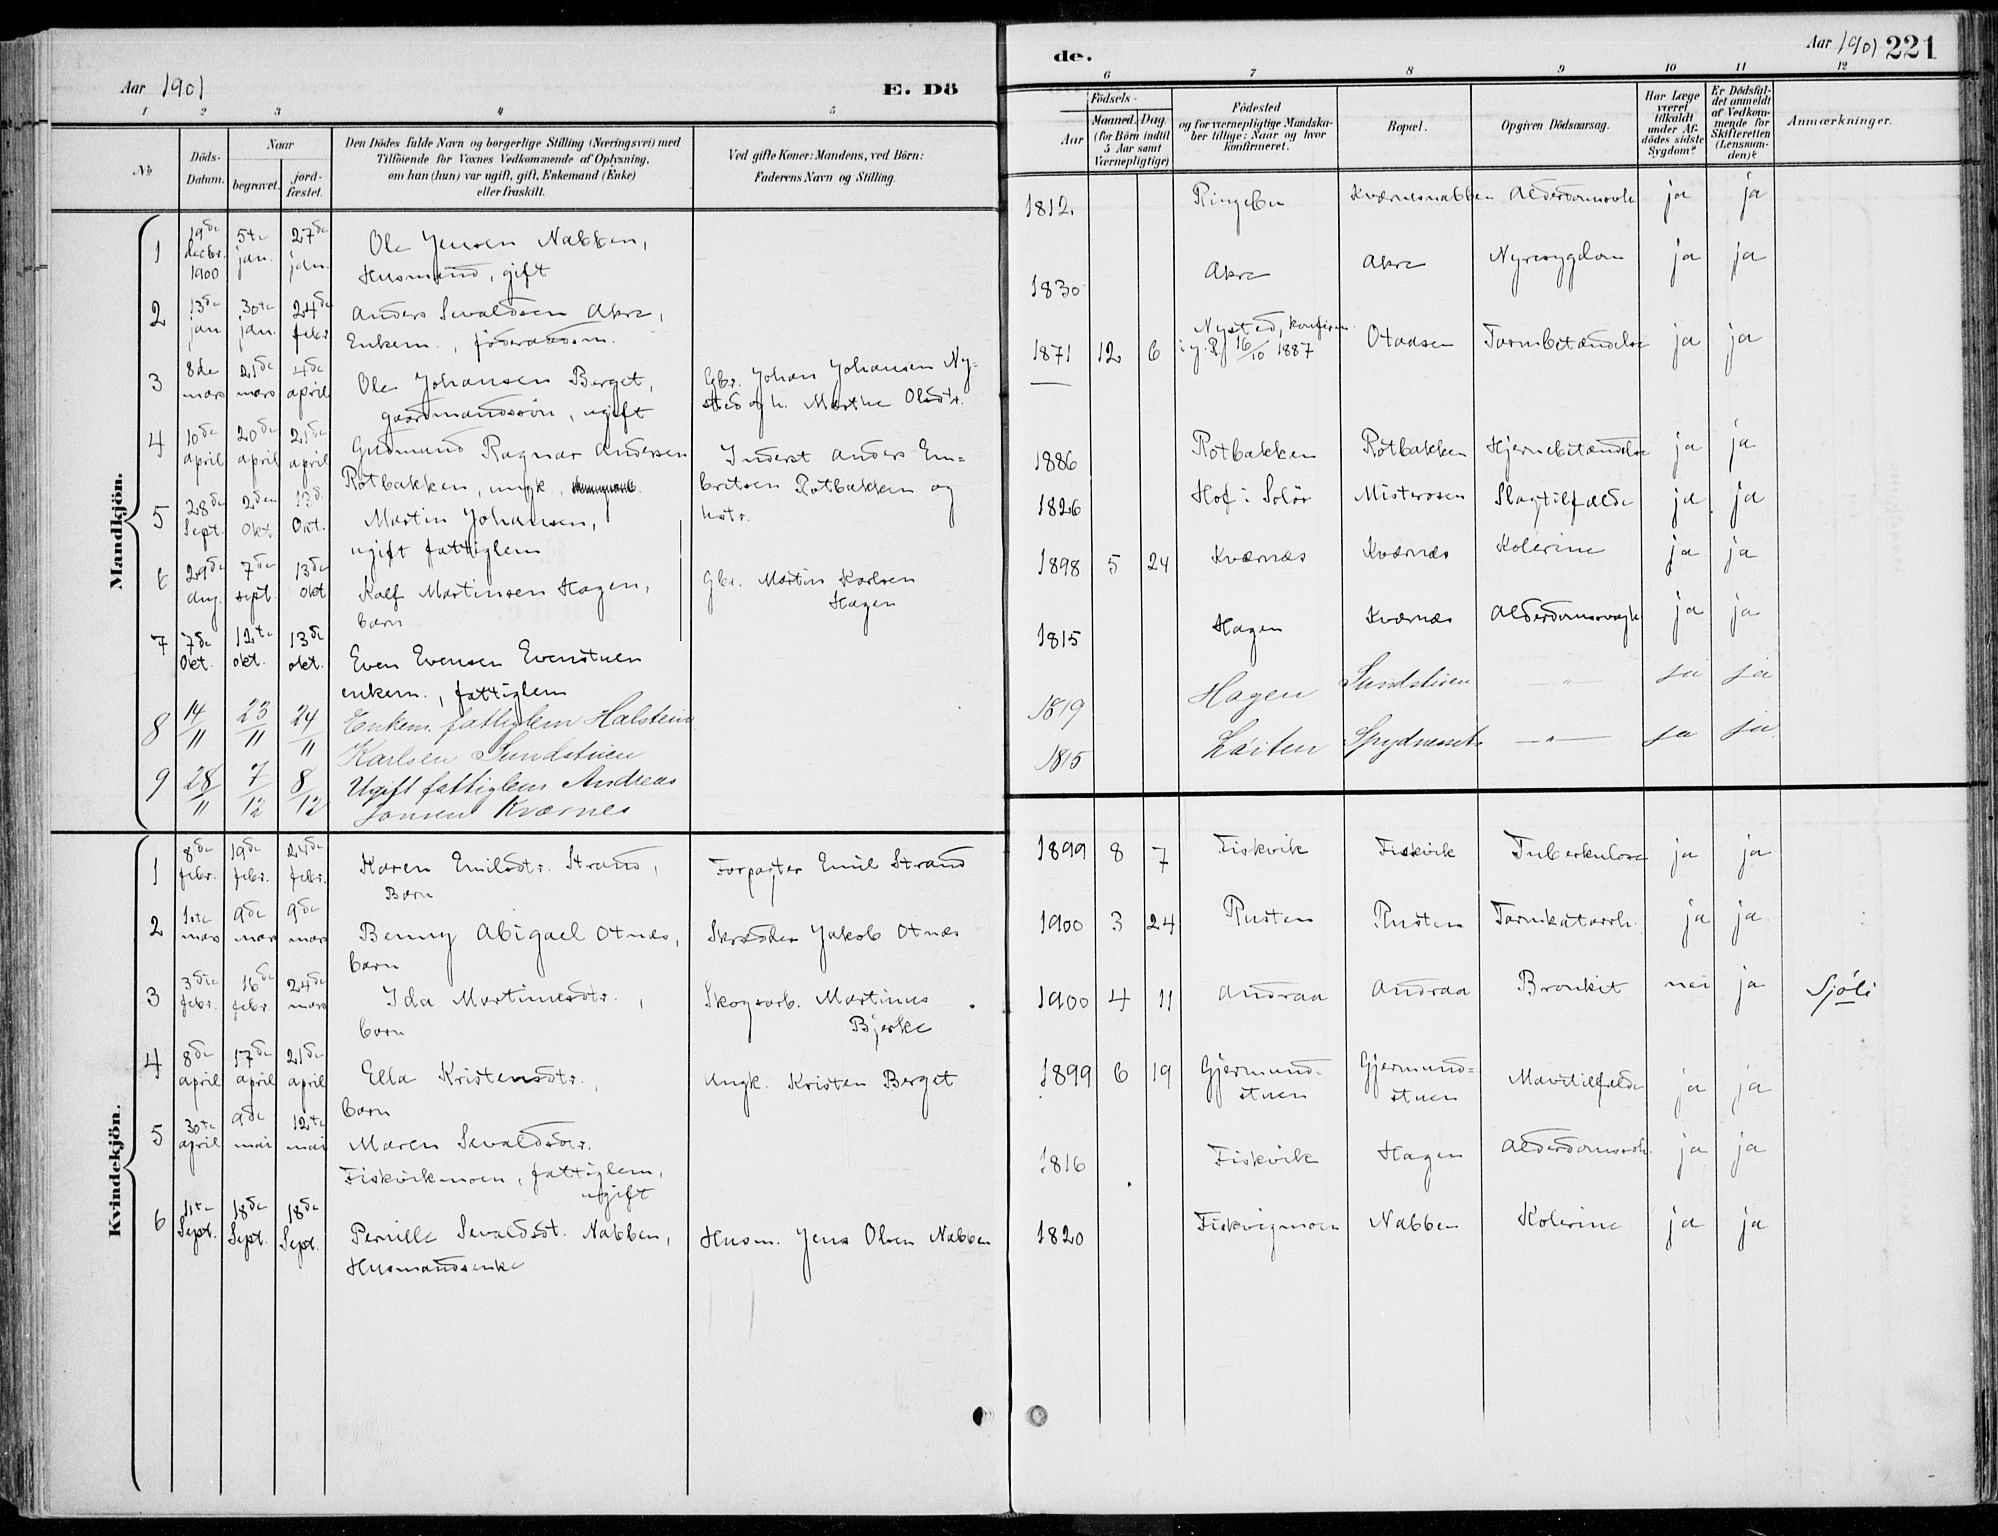 Aar 1901
E. Dö
1 2 3 4 5
No
Döds-
Datum.
Naar
begravet.
jord-
fæstet.
Den Dödes fulde Navn og borgerlige Stilling (Næringsvei) med
Tilföiende for Voxnes Vedkommende af Oplysning,
om han (hun) var ugift, gift, Enkemand (Enke)
eller fraskilt.
Ved gifte Koner: Mandens, ved Börn:
Faderens Navn og Stilling.
Mandkjön.
1 19de decbr. 1900 5te jan. 27de jan. Ole Jensen Nabben,
Husmand, gift
2 13de jan. 30te jan. 24de febr. Anders Sevaldsen Akre,
Enkem., föderaadsm.
3 8de mars 21de mars 4de april Ole Johansen Berget, Gbr. Johan Johansen Ny-
gaardmandssön, ugift sted og h. Marthe Olsdtr.
4 10de april 20de april 21de april Gudmund Ragnar Andersen Inderst Anders Em-
Rotbakken, ungk. britsen Rotbakken og
hstr.
5 28de Sept. 2den Okt 13de Okt. Martin Johansen,
ugift fattiglem
6 29de aug. 7de sept. 13de okt Kalf Martinsen Hagen, Gbr. Martin Karlsen
barn Hagen
7 7de Okt. 12te okt. 13de okt. Even Evensen Evenstuen
enkem., fattiglem
8 14/11 23/11 24/11 Enkem. fattiglem Halstein
Karlsen Sundstuen
9 28/11 7/12 8/12 Ugift fattiglem Andreas
Jonsen Kværnes
Kvindekjön.
1 8de febr. 19de febr. 24de febr. Karen Emilsdtr. Strand, Forpagter Emil Strand
Barn
2 1ste mars 9de mars 9de mars Benny Abigael Otnæs, Skrædder Jakob Otnæs
barn
3 3die febr. 16de febr. 24de mars Ida Martinusdtr., Skogsarb. Martinus
barn Bjerke
4 8de april 17de april 21de april Ella Kristensdtr., Ungk. Kristen Berget
barn
5 30te april 9de mai 12te mai Maren Sevaldsdtr.
Fiskvikmoen, fattiglem,
ugift
6 11te Sept. 18de Sept. 18de Sept. Pernille Sevaldsdt. Nabben, Husm. Jens Olsen Nabben
Husmandsenke
de.
Aar 1901 221
6 7 8 9 10 11 12
Födsels-
Aar
Maaned. Dag.
(for Börn indtil
5 Aar samt
Værnepligtige)
Födested
og for værnepligtige Mandska-
ber tillige: Naar og hvor
konfirmeret.
Bopæl.
Opgiven Dödsaarsag.
Har Læge
været
tilkaldt
under Af-
dödes sidste
Sygdom?
Er Dödsfal-
det anmeldt
af Vedkom-
mende for
Skifteretten
(Lensman-
den)?
Anmærkninger.
1812. Ringebu Kværnesnabben Alderdomssvh ja ja
1830 Akre Akre Nyresygdom ja ja
1871 12 6 Nysted, konfirm. i y. R. 16/10 1887 Otaasen Tarmbetændelse ja ja
1886 Rotbakken Rotbakken Hjernebetændelse ja ja
1826 Hof i Solör Misterosen Slagtilfælde ja ja
1898 5 24 Kværnæs Kværnæs Kolerine ja ja
1815 Hagen Kværnæs Alderdomssvagh ja ja
1819 Hagen Sundstuen — " — ja ja
1815 Löiten Spydnesset — " — ja ja
1899 8 7 Fiskvik Fiskvik Tuberkulose ja ja
1900 3 24 Rusten Rusten Tarmkatarrh. ja ja.
1900 4 11 Andraa Andraa Bronkit nei ja Sjöli
1899 6 19 Gjermund- Gjermund- Mavetilfælde ja ja
stuen stuen
1816 Fiskvik Hagen Alderdomssvh. ja ja
1820 Fiskvigmoen Nabben Kolerine ja ja